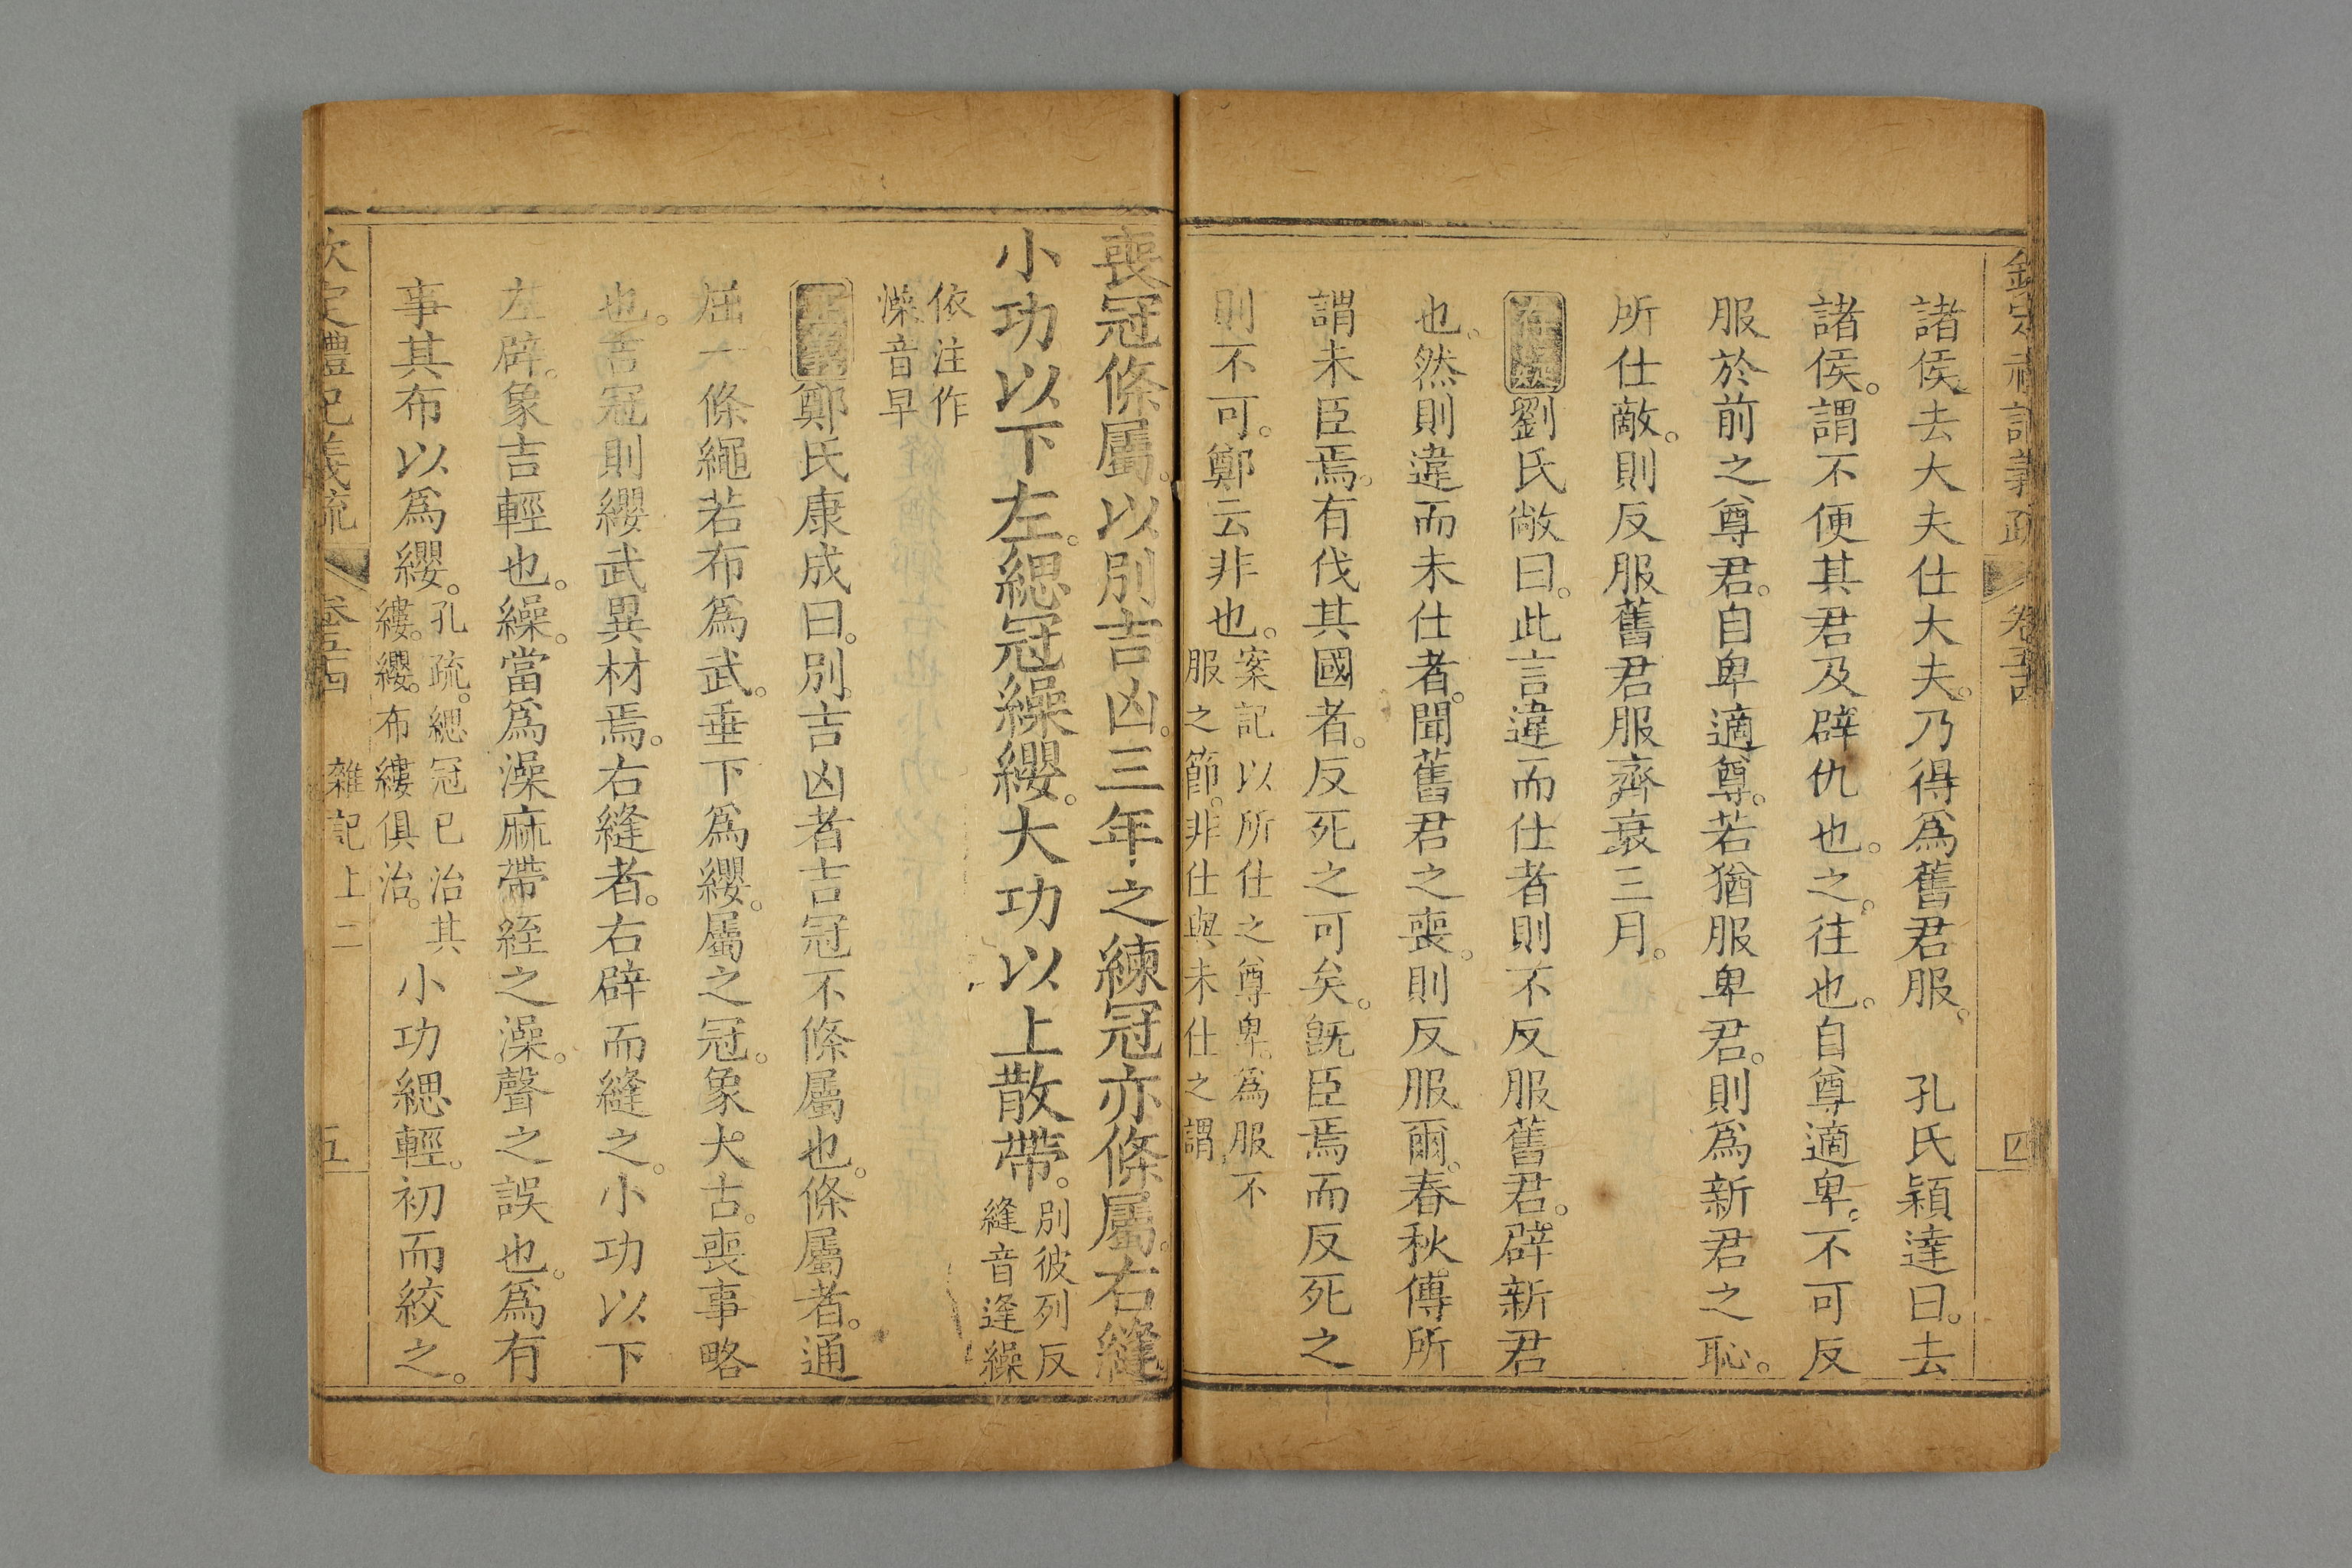 諸侯去大夫仕大夫。乃得爲舊君服。　孔氏穎達曰。去
諸侯。謂不便其君及辟仇也。之。往也。自尊適卑。不可反
服於前之尊君。自卑適尊。若猶服卑君。則爲新君之恥。
所仕敵。則反服舊君服齊衰三月。
劉氏敞曰。此言違而仕者則不反服舊君。辟新君
也。然則違而未仕者。聞舊君之喪。則反服爾。春秋傳所
謂未臣焉。有伐其國者。反死之可矣。旣臣焉而反死之
則不可。鄭云非也。
案記以所仕之尊卑。爲服不
服之節。非仕與未仕之謂
喪冠條屬。以別吉凶。三年之練冠亦條屬。右縫
小功以下左。緦冠繰纓。大功以上散帶。
別彼列反
縫音逢繰
依注作
澡音早
正義鄭氏康成曰。別吉凶者吉冠不條屬也。條屬者。通
屈一條繩若布爲武。垂下爲纓。屬之冠。象大古。喪事略
也。吉冠則纓武異材焉。右縫者。右辟而縫之。小功以下
左辟。象吉輕也。繰。當爲澡麻帶絰之澡。聲之誤也。爲有
事其布以爲纓。
孔疏。緦冠已治其
縷。纓。布縷俱治。
小功緦輕。初而絞之。
欽定禮記義疏
卷五十四
雜記上二
五